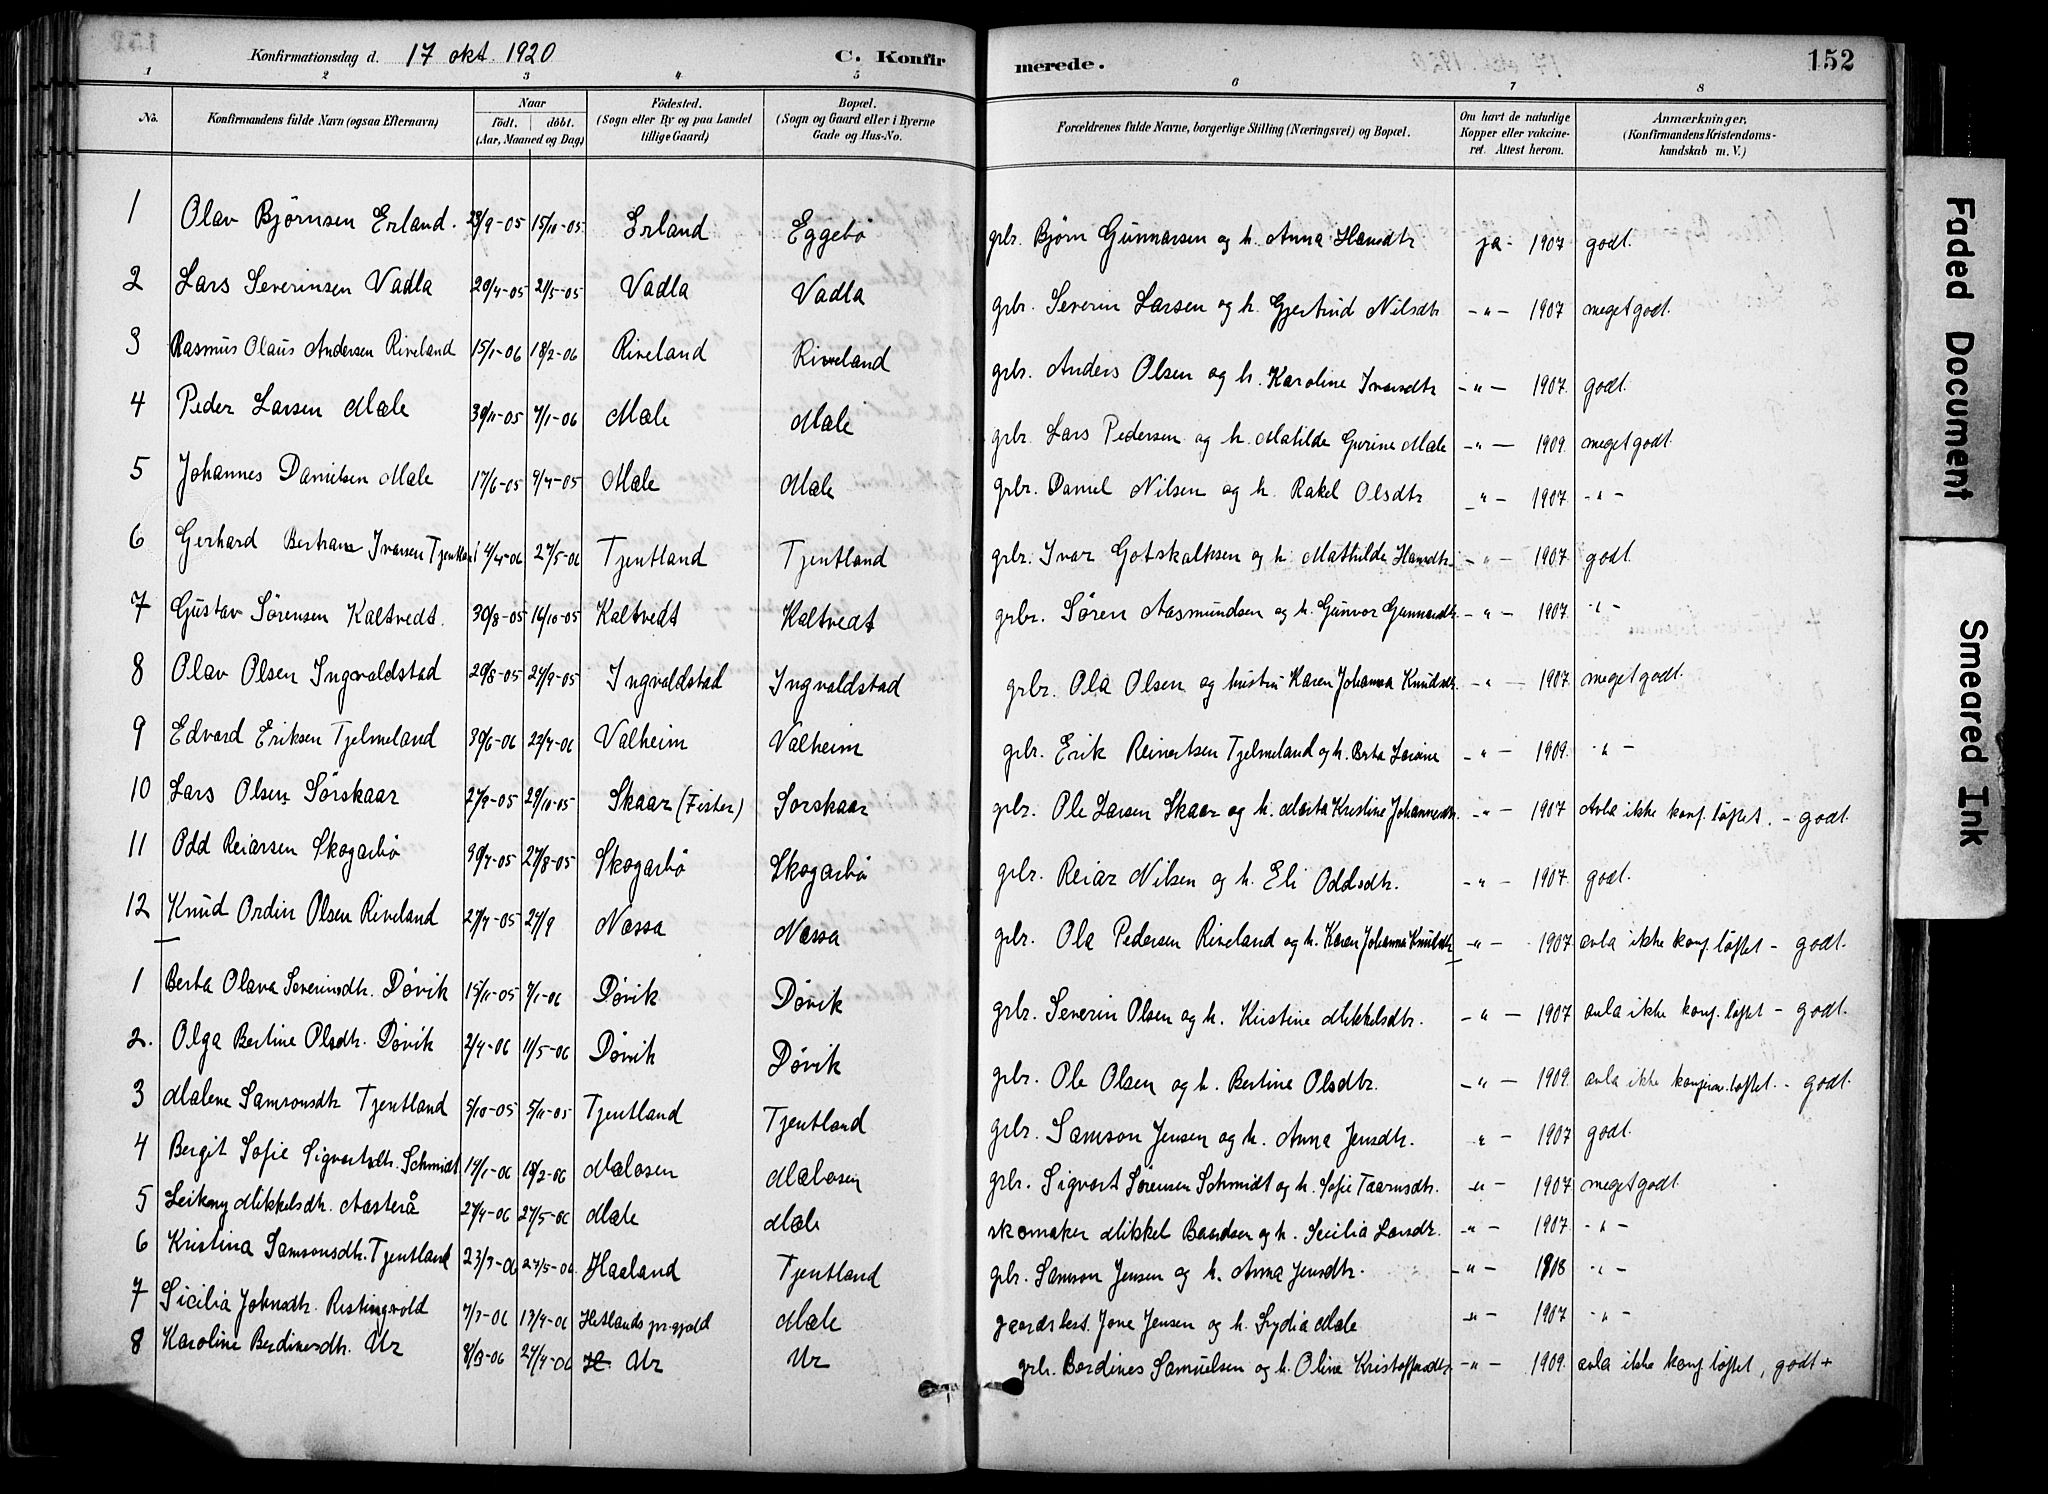 Konfirmationsdag d. 17 okt. 1920 C. Konfir
merede. 152
1 2 3 4 5 6 7 8
No. Konfirmandens fulde Navn (ogsaa Efternavn) Naar Født. døbt. (Aar, Maaned og Dag) Fødested. (Sogn eller By og paa Landet tillige Gaard) Bopæl. (Sogn og Gaard eller i Byerne Gade og Hus-No. Forældrenes fulde Navne, borgerlige Stilling (Næringsvei) og Bopæl. Om havt de naturlige Kopper eller vakcineret. Attest herom. Anmærkninger, (Konfirmandens Kristendomskundskab m. V.)
1 Olav Bjørnsen Erland. 23/9-05 15/10-05 Erland Eggebø grbr. Bjørn Gunnarsen og h. Anna Hansdtr ja - 1907 godt.
2 Lars Severinsen Vadla 20/4-05 21/5-05 Vadla Vadla grbr. Severin Larsen og h. Gjertrud Nilsdtr -"- 1907 meget godt.
3 Rasmus Olaus Andersen Riveland 15/1-06 18/2-06 Riveland Riveland grbr. Anders Olsen og h. Karoline Ivarsdtr -"- 1907 godt.
4 Peder Larsen Mæle 30/11-05 7/1-06 Mæle Mæle grbr. Lars Pedersen og h. Matilde Gurine Mæle -"- 1909. meget godt.
5 Johannes Danielsen Mæle 17/6-05 9/7-05 Mæle Mæle grbr. Daniel Nilsen og h. Rakel Olsdtr -"- 1907 -"-
6 Gerhard Ivarsen 4/4-06 27/5-06 Tjentland Tjentland grbr. Ivar Gotskalksen og h. Mathilde Hansdtr. -"- 1907 godt.
7 Gustav Sørensen Kaltvedt. 30/8-05 Kaltvedt Kaltvedt grbr. Søren Aasmundsen og h. Gunvor Gunnarsdtr. -"- 1907. -"-
8 Olav Olsen Ingvaldstad 29/8-05 24/9-05 Ingvaldstad Ingvaldstad grbr. Ola Olsen og hustru Karen Johanna Knudsdtr. -"- 1907 meget godt.
9 Edvard Eriksen Tjelmeland 30/6-06 22/7-06 Valheim Valheim grbr. Erik Reinertsen Tjelmeland og h. Berta -"- 1909. -"-
10 Lars Olsen Sørskaar 27/9-05 29/10-05 Skaar (Fister) Sørskaar grbr. Ole Larsen Skaar og h. Marta Kristine Johannesdtr. -"- 1907 Avla ikke konf. løftet. - godt.
11 Odd Reiarsen Skogarbø 30/7-05 27/8-05 Skogarbø Skogarbø grbr. Reiar Nilsen og h. Eli Oddsdtr. -"- 1907. godt.
12 Knud Ordin Olsen Riveland 27/7-05 24/9 Næssa Næssa grbr. Ola Pedersen Riveland og h. Karen Johanna Knutsdtr -"- 1907 avla ikke konf løftet - godt.
1 Berta Olava Severinsdtr. Døvik 15/11-05 7/1-06 Døvik Døvik grbr. Severin Olsen og h. Kristine Mikkelsdtr. -"- 1907 avla ikke konf. løftet - godt.
2. Olga Bertine Olsdtr. Døvik 2/4-06 11/5-06 Døvik Døvik grbr. Ole Olsen og h. Bertine Olsdtr. -"- 1909. avla ikke konfirm. løftet. - godt.
3 Malene Samsonsdtr Tjentland 5/10-05 5/11-05 Tjentland Tjentland grbr. Samson Jensen og h. Anna Jensdtr. "- 1907 godt.
4 Bergit Sofie Sigvartsdtr. Schmidt 14/1-06 18/2-06 Mælosen Mælosen grbr. Sigvart Sørensen Schmidt og h. Sofie -"- 1907 meget godt.
5 Leikny Mikkelsdtr. 27/4-06 27/5-06 Mæle Mæle skomaker Mikkel Baardsen og h. Secilia Larsdtr. -"- 1907. -"-
6 Kristina Samsonsdtr. Tjentland 23/3-06 27/5-06 Haaland Tjentland grbr. Samson Jensen og h. Anna Jensdtr. -"- 1908 -"-
7 Sicilia Johnsdtr. 7/3-06 13/4-06 Mæle Jone Jensen og h. Lydia Mæle -"- 1907 -"-
8 Karoline Berdinesdtr. Ur 8/3-06 24/4-06 Ur Ur grbr. Berdines Samuelsen og h. Oline Kristoffersdtr. -"- 1909. avla ikke konf løftet, godt +
Faded Document
Smeared Ink